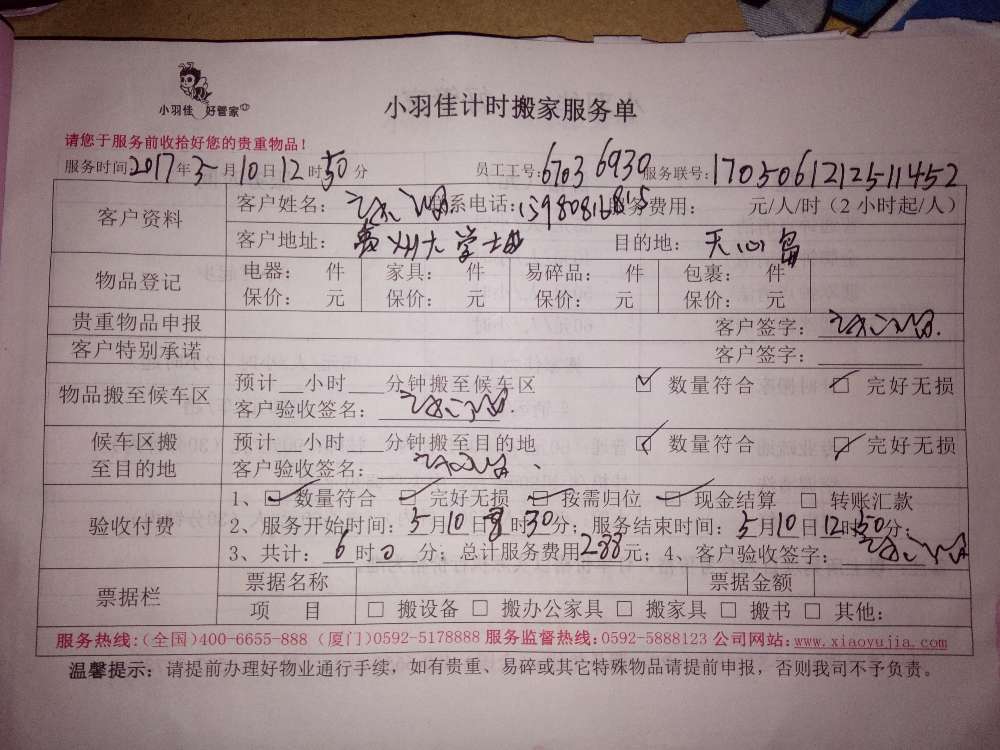 小羽佳 好管家
小羽佳计时搬家服务单
请您于服务前收拾好您的贵重物品！
服务时间:2017年5月10日12时50分 员工工号:6703 6930 服务联号:1705061212511452
客户资料
客户姓名： 联系电话: 服务费用： 元/人/时（2小时起/人）
客户地址：贵州大学 目的地：天心岛
物品登记
电器： 件 家具： 件 易碎品： 件 包裹： 件
保价： 元 保价： 元 保价： 元 保价： 元
贵重物品申报 客户签字：
客户特别承诺 客户签字：
物品搬至候车区
预计 小时 分钟搬至候车区 ☑ 数量符合 ☑ 完好无损
客户验收签名：
候车区搬至目的地
预计 小时 分钟搬至目的地 ☑ 数量符合 ☑ 完好无损
客户验收签名：
验收付费
1、☑ 数量符合 ☑ 完好无损 ☑ 按需归位 ☑ 现金结算 □ 转账汇款
2、服务开始时间：5月10日 时30分；服务结束时间：5月10日12时50分；
3、共计：6时0分；总计服务费用288元；4、客户验收签字：
票据栏
票据名称 票据金额
项 目 □ 搬设备 □ 搬办公家具 □ 搬家具 □ 搬书 □ 其他：
服务热线:(全国)400-6655-888 (厦门)0592-5178888 服务监督热线:0592-5888123 公司网站:www.xiaoyujia.com
温馨提示：请提前办理好物业通行手续，如有贵重、易碎或其它特殊物品请提前申报，否则我司不予负责。